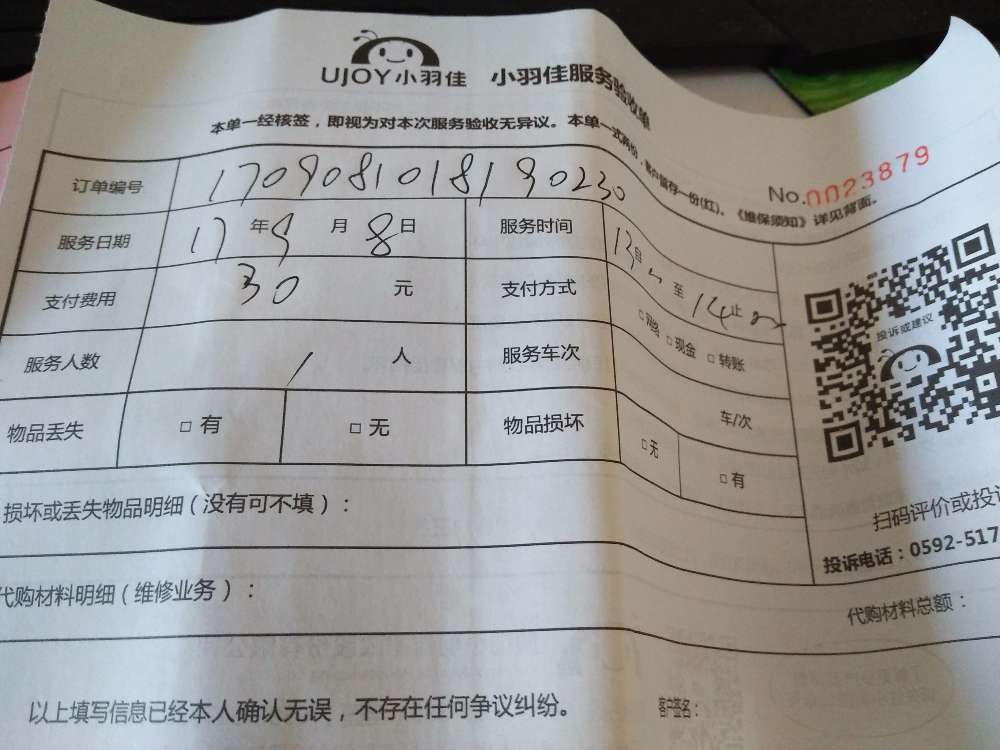 UJOY小羽佳 小羽佳服务验收单
本单一经核签，即视为对本次服务验收无异议。本单一式两份，客户留存一份(红)。《维保须知》详见背面。
No.0023879
订单编号 1709081018190230
服务日期 17年9月8日 服务时间 13自 至14止
支付费用 30元 支付方式 □网络 □现金 □转账
服务人数 1人 服务车次 车/次
物品丢失 □有 □无 物品损坏 □无 □有
投诉或建议
损坏或丢失物品明细（没有可不填）：
扫码评价或投
投诉电话：0592-517
代购材料明细（维修业务）：
代购材料总额：
以上填写信息已经本人确认无误，不存在任何争议纠纷。 客户签名：